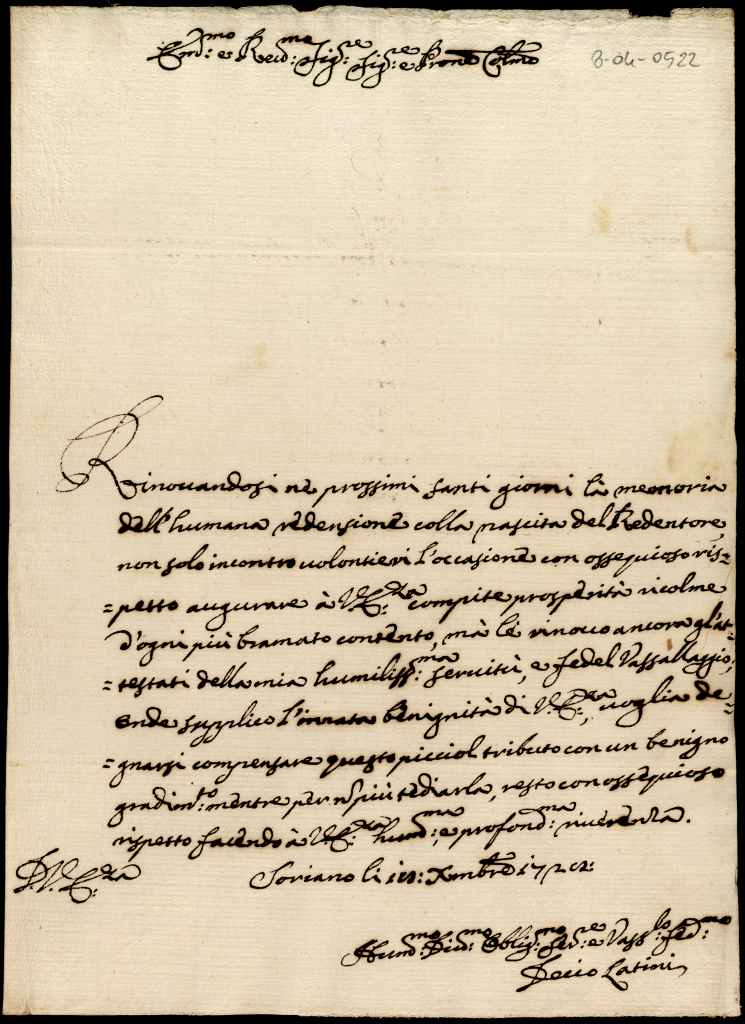 Em:mo e Reu:mo Sig:re Sig:re e Prone Colmo
B-04-0522
Rinouandosi ne prossimi santi giorni la memoria
dell'humana redensione colla nascita del Redentore,
non solo incontro uolontieri l'occasione con ossequioso ris=
=petto augurare à V:E:za compite prosperità ricolme
d'ogni più bramato contento, mà le rinouo ancora gl'at=
=testati della mia humiliss:ma seruitù, e fedel Vassallaggio;
onde supplico l'innata benignità di V:E:za, uoglia de=
=gnarsi compensare questo picciol tributo con un benigno
gradim:to mentre per n più tediarla, resto con ossequioso
rispetto facendo à V:E:za hum:ma, e profond:ma riuerenza.
D.V.E:za
Soriano li Xmbre
Hum:mo Diu:mo Oblig:mo Ser:re e Vass:lo Fed:mo
Decio Latini